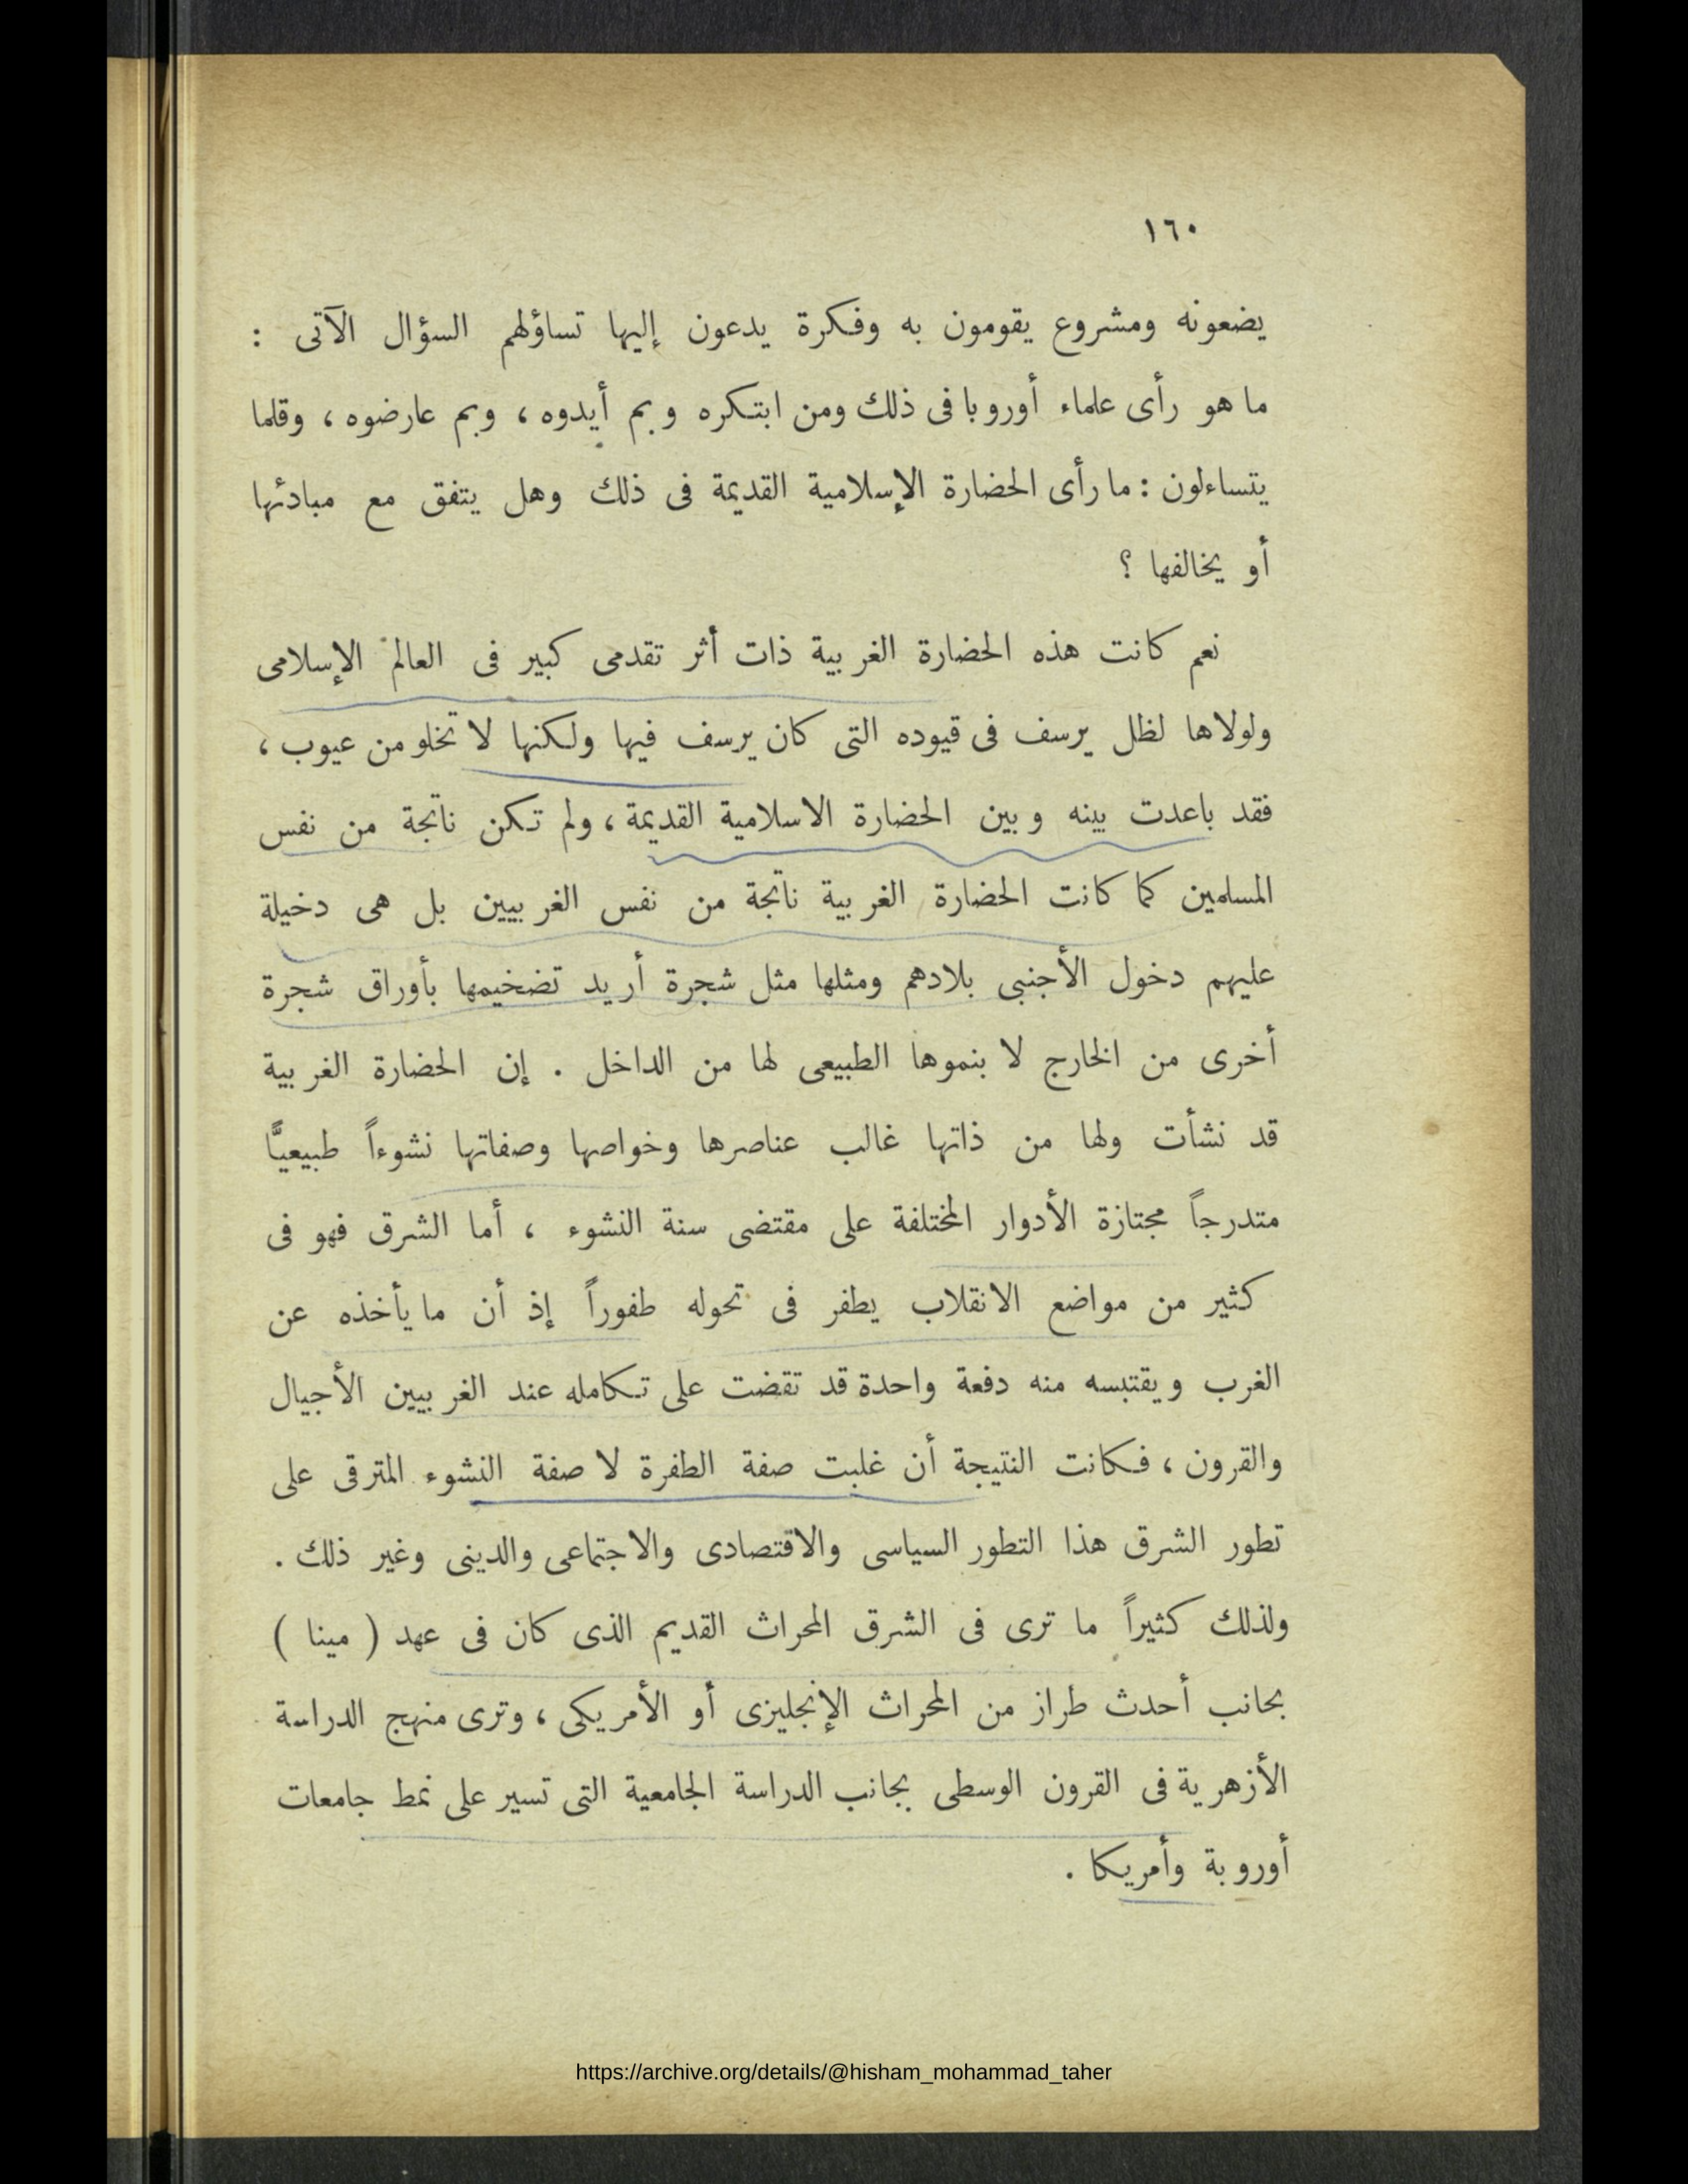 ١٦٠
يضعونه ومشروع يقومون به وفكرة يدعون إليها تساؤلهم السؤال الآتى :
ما هو رأى علماء أوروبا فى ذلك ومن ابتكره وبم أيدوه ، وبم عارضوه ، وقلما
يتساءلون : ما رأى الحضارة الإسلامية القديمة فى ذلك وهل يتفق مع مبادئها
أو يخالفها ؟
نعم كانت هذه الحضارة الغربية ذات أثر تقدمى كبير فى العالم الإسلامى
ولولاها لظل يرسف فى قيوده التى كان يرسف فيها ولكنها لا تخلو من عيوب ،
فقد باعدت بينه وبين الحضارة الاسلامية القديمة ، ولم تكن ناتجة من نفس
المسلمين كما كانت الحضارة الغربية ناتجة من نفس الغربيين بل هى دخيلة
عليهم دخول الأجنبى بلادهم ومثلها مثل شجرة أريد تضخيمها بأوراق شجرة
أخرى من الخارج لا بنموها الطبيعى لها من الداخل . إن الحضارة الغربية
قد نشأت ولها من ذاتها غالب عناصرها وخواصها وصفاتها نشوءاً طبيعيًّا
متدرجاً مجتازة الأدوار المختلفة على مقتضى سنة النشوء ، أما الشرق فهو فى
كثير من مواضع الانقلاب يطفر فى تحوله طفوراً إذ أن ما يأخذه عن
الغرب ويقتبسه منه دفعة واحدة قد تقضت على تكامله عند الغربيين الأجيال
والقرون ، فكانت النتيجة أن غلبت صفة الطفرة لا صفة النشوء المترقى على
تطور الشرق هذا التطور السياسى والاقتصادى والاجتماعى والدينى وغير ذلك .
ولذلك كثيراً ما ترى فى الشرق المحراث القديم الذى كان فى عهد ( مينا )
بجانب أحدث طراز من المحراث الإنجليزى أو الأمريكى ، وترى منهج الدراسة
الأزهرية فى القرون الوسطى بجانب الدراسة الجامعية التى تسير على نمط جامعات
أوروبة وأمريكا .
https://archive.org/details/@hisham_mohammad_taher